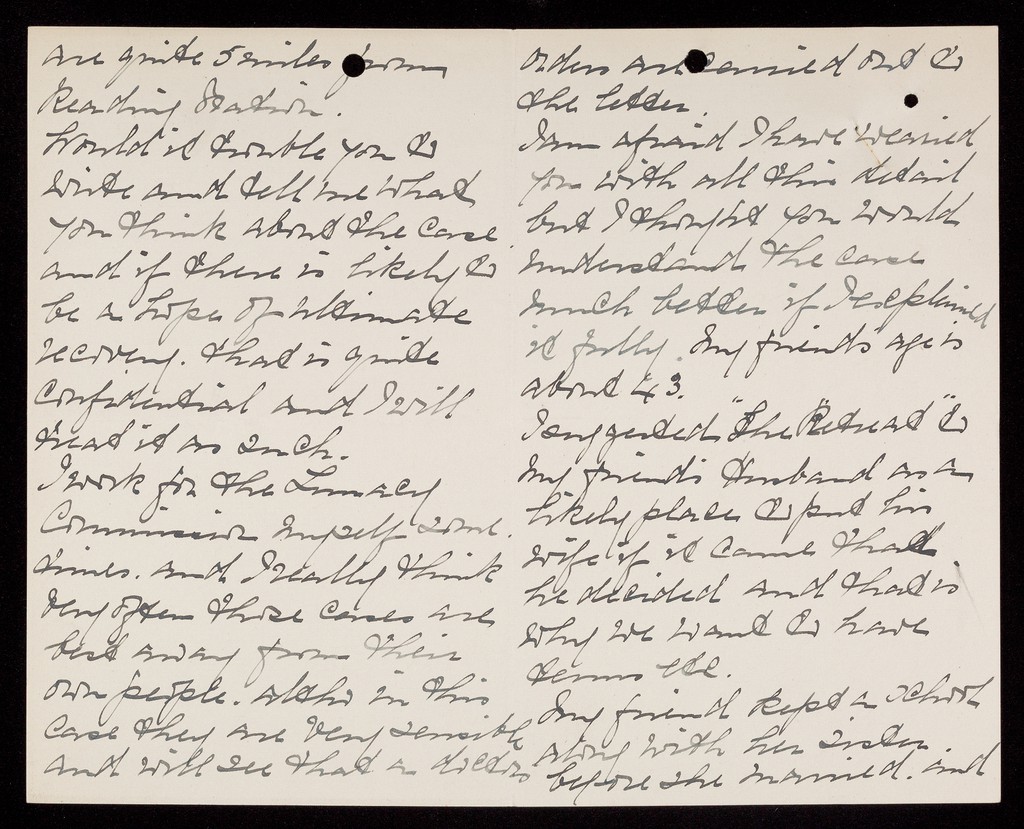 are quite 5 miles from
Reading Station.
Would it trouble you to
write and tell me what
you think about the case
and if there is likely to
be a hope of ultimate
recovery. that is quite
confidential and I will
treat it as such.
I work for the Lunacy
Commission myself some
times. and I really think
very often these cases are
best away from their
own people. altho in this
case they are very sensible
and will see that a doctors
orders are carried out to
the letter.
I am afraid I have wearied
you with all this detail
but I thought you would
understand the case
much better if I explained
it fully. My friend's age is
about 43.
I suggested "The Retreat" to
my friend's Husband as a
likely place to put his
wife if it came that
he decided and that is
why we want to have
terms etc.
My friend kept a school
along with her sister.
before she married. and